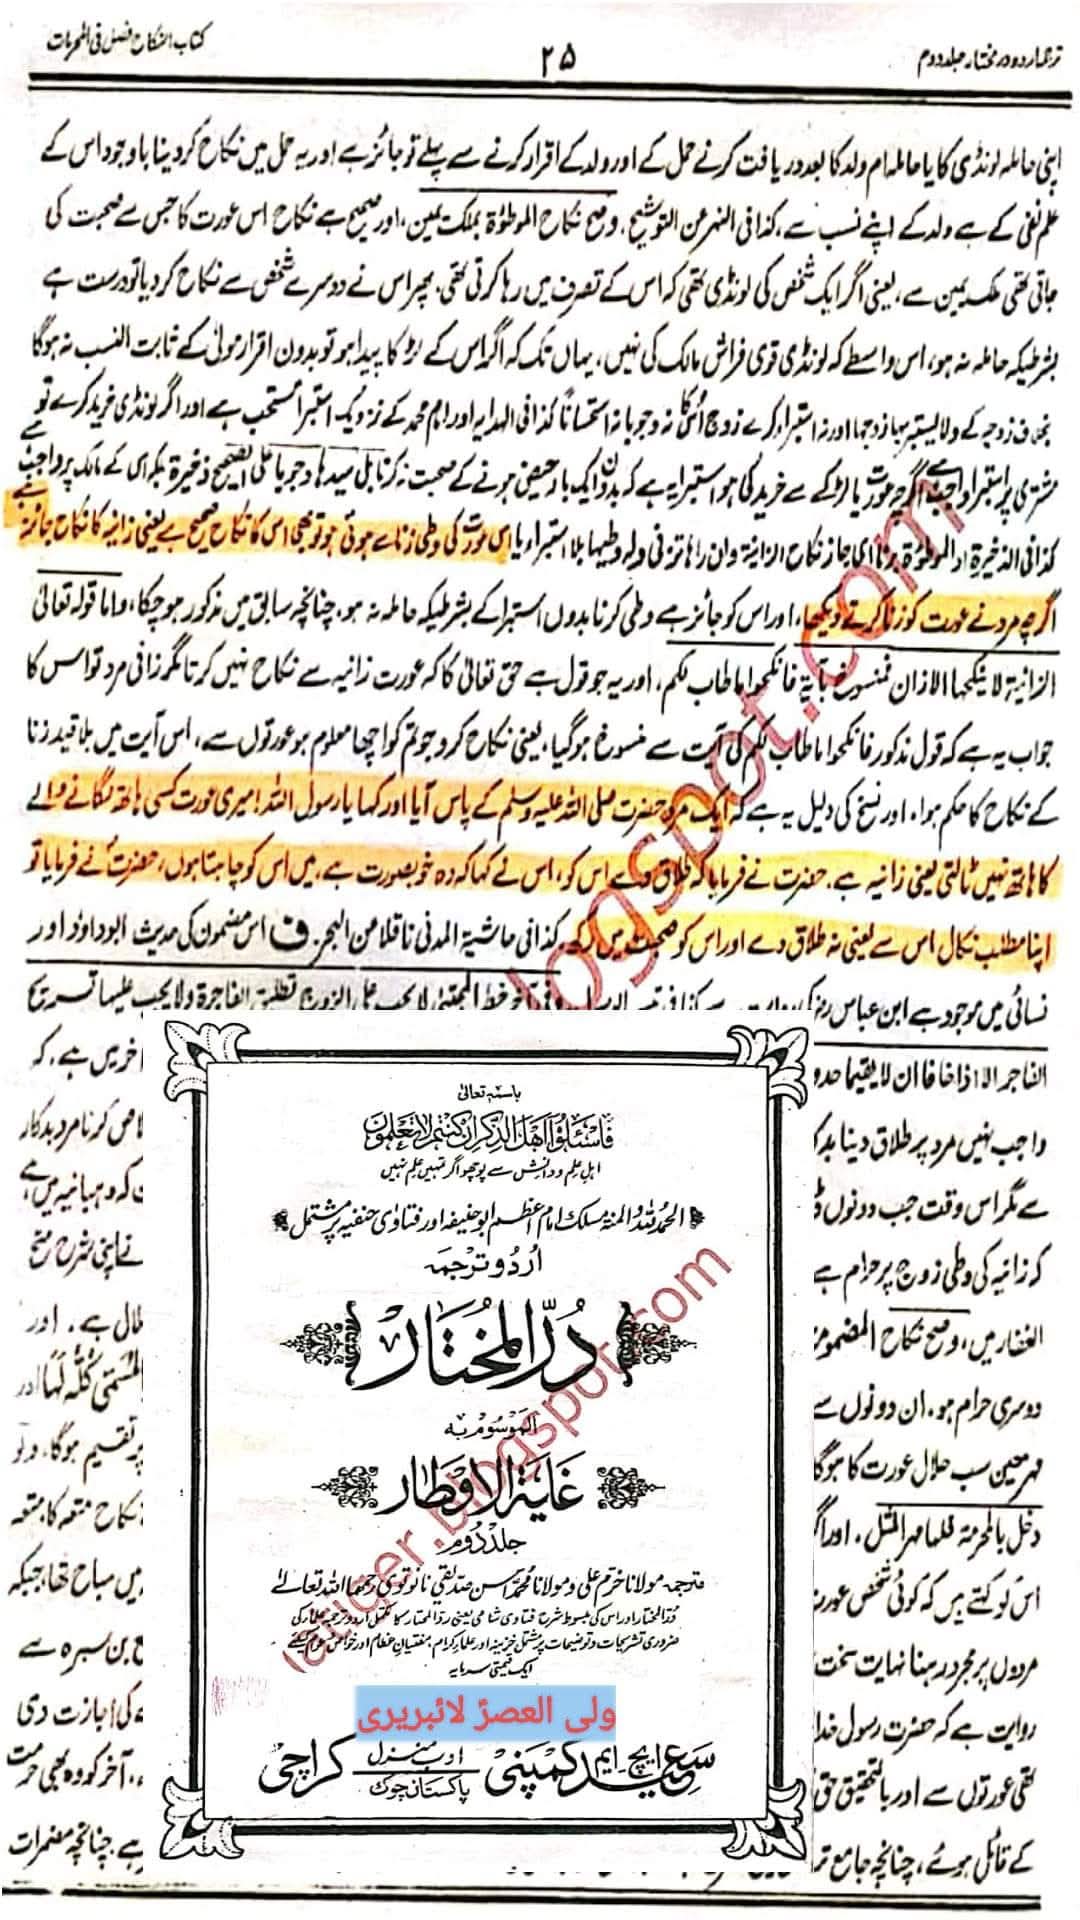 ترجمہ اردو در مختار جلد دوم
۲۵
کتاب النکاح فصل فی المحرمات
اپنی حاملہ لونڈی کا یا حاملہ ام ولد کا بعد دریافت کرنے حمل کے اور ولد کے اقرار کرنے سے پہلے تو جائز ہے اور یہ حمل میں نکاح کر دینا باوجود اس کے
علم نفی کے ہے ولد کے اپنے نسب سے، کذا فی النہر عن التوشیح. وصح نکاح الموطؤۃ بملک یمین، اور صحیح ہے نکاح اس عورت کا جس سے صحبت کی
جاتی تھی ملک یمین سے، یعنی اگر ایک شخص کی لونڈی تھی کہ اس کے تصرف میں رہا کرتی تھی. پھر اس نے دوسرے شخص سے نکاح کر دیا تو درست ہے
بشرطیکہ حاملہ نہ ہو، اس واسطے کہ لونڈی قوی فراش مالک کی نہیں، یہاں تک کہ اگر اس کے لڑکا پیدا ہو تو بدون اقرار مولیٰ کے ثابت النسب نہ ہوگا
بخلاف زوجہ کے ولا یستبریہا زوجہا اور نہ استبراء کرے زوج اس کا نہ وجوبا نہ استحسانا کذا فی الہدایہ اور امام محمد کے نزدیک استبرا مستحب ہے اور اگر لونڈی خرید کرے تو
مشتری پر استبرا واجب ہے اگرچہ عورت یا لڑکے سے خرید کی ہو استبرا یہ ہے کہ بدون ایک بار حیض ہونے کے صحبت نہ کرنا بل سیدہا وجوبا علی الصحیح ذخیرۃ بلکہ اس کے مالک پر واجب ہے
کذا فی الذخیرۃ او الموطوۃ بزنا ای جاز نکاح الزانیۃ وان راہا تزنی ولہ وطیہا بلا استبراء یا اس عورت کی وطی زنا سے ہوئی ہو تو بھی اس کا نکاح صحیح ہے یعنی زانیہ کا نکاح جائز ہے
اگرچہ مرد نے عورت کو زنا کرتے دیکھا، اور اس کو جائز ہے وطی کرنا بدون استبرا کے بشرطیکہ حاملہ نہ ہو، چنانچہ سابق میں مذکور ہو چکا، واما قولہ تعالیٰ
الزانیۃ لا ینکحہا الا زان فمنسوخ بآیۃ فانکحوا ما طاب لکم، اور یہ جو قول ہے حق تعالیٰ کا کہ عورت زانیہ سے نکاح نہیں کرتا مگر زانی مرد تو اس کا
جواب یہ ہے کہ قول مذکور فانکحوا ما طاب لکم کی آیت سے منسوخ ہو گیا، یعنی نکاح کرو جو تم کو اچھا معلوم ہو عورتوں سے، اس آیت میں بلا قید زنا
کے نکاح کا حکم ہوا، اور نسخ کی دلیل یہ ہے کہ ایک مرد حضرت صلی اللہ علیہ وسلم کے پاس آیا اور کہا یا رسول اللہ! میری عورت کسی ہاتھ لگانے والے
کا ہاتھ نہیں ٹالتی یعنی زانیہ ہے. حضرت نے فرمایا کہ طلاق دے اس کو، اس نے کہا کہ وہ خوبصورت ہے، میں اس کو چاہتا ہوں، حضرت نے فرمایا تو
اپنا مطلب نکال اس سے یعنی نہ طلاق دے اور اس کو صحبت میں رکھ، کذا فی حاشیۃ المدنی ناقلا من البحر. ف اس مضمون کی حدیث ابوداؤد اور
نسائی میں موجود ہے ابن عباس رضی کی روایت سے کذا فی
الفاجر الا اذا خافا ان لا یقیما حدو
اخر میں ہے، کہ
واجب نہیں مرد پر طلاق دینا بدکا
لاص کرنا مرد بدکار
سے مگر اس وقت جب دونوں
ت کو وہبانیہ میں ہے
کہ زانیہ کی وطی زوج پر حرام ہے
نے اپنی شرح منح
الغفار میں، وصح نکاح المضموم
طال ہے. اور
دوسری حرام ہو، ان دونوں سے
المسمی کلہ لہا اور
مہر معین سب حلال عورت کا ہوگا
پر تقسیم ہوگا. ولو
دخل بالمحرمۃ فلہا مہر المثل، اور اگر
نکاح متعہ کا، متعہ
اس کو کہتے ہیں کہ کوئی شخص عورت
یں مباح تھا، جبکہ
مردوں پر مجرد رہنا نہایت سخت
ع بن سبرہ سے
روایت ہے کہ حضرت رسول خدا
کے کی اجازت دی
تھی عورتوں سے اور بالتحقیق حق
، آخر کو وہ بھی حرمت
کے قائل ہوئے، چنانچہ جامع تر
ہے. چنانچہ مضمرات
باسمہ تعالیٰ
فاسئلوا اھل الذکر ان کنتم لا تعلمون
اہل علم و دانش سے پوچھو اگر تمہیں علم نہیں
الحمد للہ والمنۃ مسلک امام اعظم ابو حنیفہ اور فتاویٰ حنفیہ پر مشتمل
اُردو ترجمہ
دُرّ المُختار
الموسوم بہ
غایۃ الاوطار
جلد دوم
مترجمہ مولانا خرم علی و مولانا محمد احسن صدیقی نانوتوی رحمہما اللہ تعالےٰ
درالمختار اور اس کی مبسوط شرح فتاویٰ شامی یعنی ردالمحتار کا مکمل اردو ترجمہ علماء کی
ضروری تشریحات و توضیحات پر مشتمل خزینہ اور علماء کرام، مفتیان عظام اور خواص و عوام کیلئے
ایک قیمتی سرمایہ
ولی العصرؑ لائبریری
ایچ ایم سعید کمپنی ادب منزل پاکستان چوک کراچی